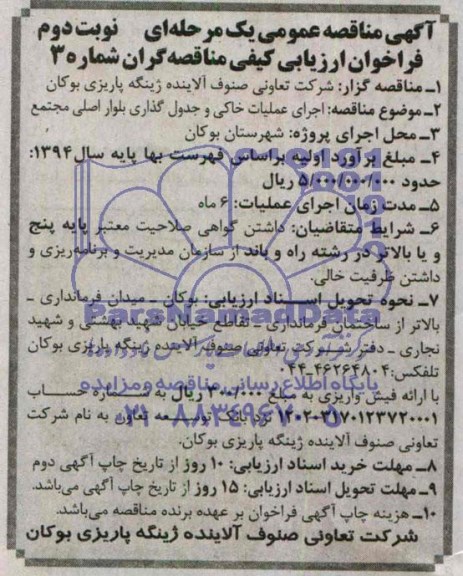 آگهی مناقصه عمومی یک مرحله‌ای    نوبت دوم
فراخوان ارزیابی کیفی مناقصه‌گران شماره ۳
۱ـ مناقصه گزار: شرکت تعاونی صنوف آلاینده ژینگه پاریزی بوکان
۲ـ موضوع مناقصه: اجرای عملیات خاکی و جدول گذاری بلوار اصلی مجتمع
۳ـ محل اجرای پروژه: شهرستان بوکان
۴ـ مبلغ برآورد اولیه براساس فهرست بها پایه سال ۱۳۹۴:
حدود ۵/۰۰۰/۰۰۰/۰۰۰ ریال
۵ـ مدت زمان اجرای عملیات: ۶ ماه
۶ـ شرایط متقاضیان: داشتن گواهی صلاحیت معتبر پایه پنج
و یا بالاتر در رشته راه و باند از سازمان مدیریت و برنامه‌ریزی و
داشتن ظرفیت خالی.
۷ـ نحوه تحویل اسناد ارزیابی: بوکان ـ میدان فرمانداری ـ
بالاتر از ساختمان فرمانداری ـ تقاطع خیابان شهید بهشتی و شهید
نجاری ـ دفتر شرکت تعاونی صنوف آلاینده ژینگه پاریزی بوکان
تلفکس: ۴۶۲۶۴۸۰۴-۰۴۴
با ارائه فیش واریزی به مبلغ ریال به شماره حساب
نزد بانک توسعه تعاون به نام شرکت
تعاونی صنوف آلاینده ژینگه پاریزی بوکان.
۸ـ مهلت خرید اسناد ارزیابی: ۱۰ روز از تاریخ چاپ آگهی دوم
۹ـ مهلت تحویل اسناد ارزیابی: ۱۵ روز از تاریخ چاپ آگهی می‌باشد.
۱۰ـ هزینه چاپ آگهی فراخوان بر عهده برنده مناقصه می‌باشد.
شرکت تعاونی صنوف آلاینده ژینگه پاریزی بوکان
ParsNamadData
پایگاه اطلاع رسانی مناقصه و مزایده
۰۲۱-۸۸۳۴۹۶۷۰-۵